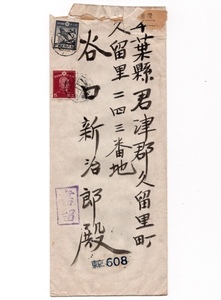 千葉縣君津郡久留里町
久留里二四三番地
谷口新治郎殿
書留
608